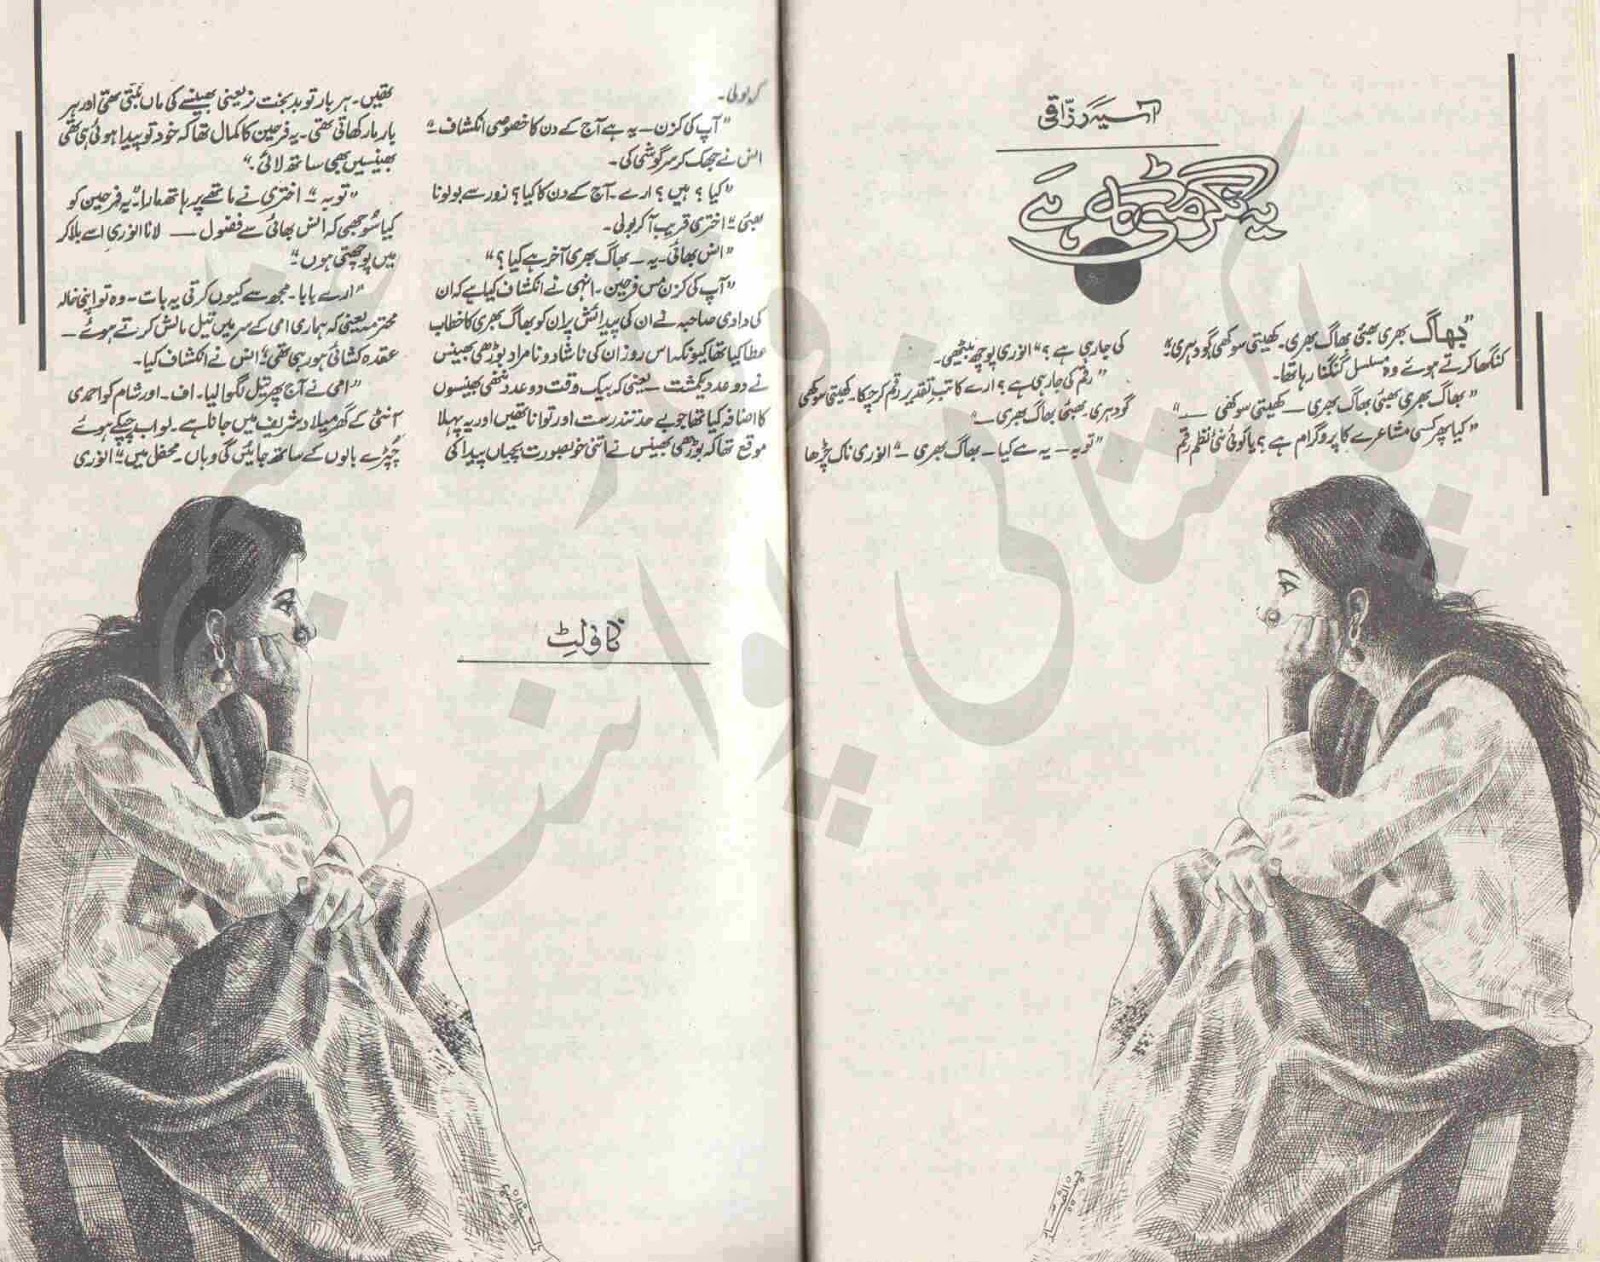 آسیہ رزاقی
یہ نگر مٹی کا ہے
"بھاگ بھری بھئی بھاگ بھری۔ کھیتی سوکھی گود ہری۔"
کنگھا کرتے ہوئے وہ مسلسل گنگنا رہا تھا۔
"بھاگ بھری بھئی بھاگ بھری — کھیتی سوکھی —"
"کیا پھر کسی مشاعرے کا پروگرام ہے؟ یا کوئی نئی نظم رقم
کی جا رہی ہے؟" انوری پوچھ بیٹھی۔
"رقم کی جا رہی ہے؟ ارے کاتب تقدیر رقم کر چکا۔ کھیتی سوکھی
گود ہری۔ بھئی بھاگ بھری —"
"توبہ — یہ ہے کیا۔ بھاگ بھری —" انوری ناک چڑھا
کر بولی۔
"آپ کی کزن — یہ ہے آج کے دن کا خصوصی انکشاف۔"
انس نے جھک کر سرگوشی کی۔
"کیا؟ ہیں؟ ارے۔ آج کے دن کا کیا؟ زور سے بولو نا
بھئی۔" اختری قریب آ کر بولی۔
"انس بھائی۔ یہ — بھاگ بھری آخر ہے کیا؟"
"آپ کی کزن مس فرحین۔ انہی نے انکشاف کیا ہے کہ ان
کی دادی صاحبہ نے ان کی پیدائش پر ان کو بھاگ بھری کا خطاب
عطا کیا تھا کیونکہ اس روز ان کی ناشاد و نامراد بوڑھی بھینس
نے دو عدد یکمشت — یعنی کہ بیک وقت دو عدد ننھی بھینسوں
کا اضافہ کیا تھا جو بے حد تندرست اور توانا تھیں اور یہ پہلا
موقع تھا کہ بوڑھی بھینس نے اتنی خوبصورت بچیاں پیدا کی
تھیں۔ ہر بار تو بدبخت نر یعنی بھینسے کی ماں بنتی تھی اور ہر
بار مار کھاتی تھی۔ یہ فرحین کا کمال تھا کہ خود تو پیدا ہوئی ہی تھی
بھینسیں بھی ساتھ لائی۔"
"توبہ۔" اختری نے ماتھے پر ہاتھ مارا۔ "یہ فرحین کو
کیا سوجھی کہ انس بھائی سے فضول — لانا انوری اسے بلا کر
میں پوچھتی ہوں۔"
"ارے بابا۔ مجھ سے کیوں کرتی یہ بات۔ وہ تو اپنی خالہ
محترمہ یعنی کہ ہماری امی کے سر میں تیل مالش کرتے ہوئے —
عقدہ کشائی ہو رہی تھی۔" انس نے انکشاف کیا۔
"امی نے آج پھر تیل لگوا لیا۔ اف۔ اور شام کو احمدی
آنٹی کے گھر میلاد شریف میں جانا ہے۔ لو اب چپکے ہوئے
چپڑے بالوں کے ساتھ جائیں گی وہاں۔ محفل میں۔" انوری
ناولٹ